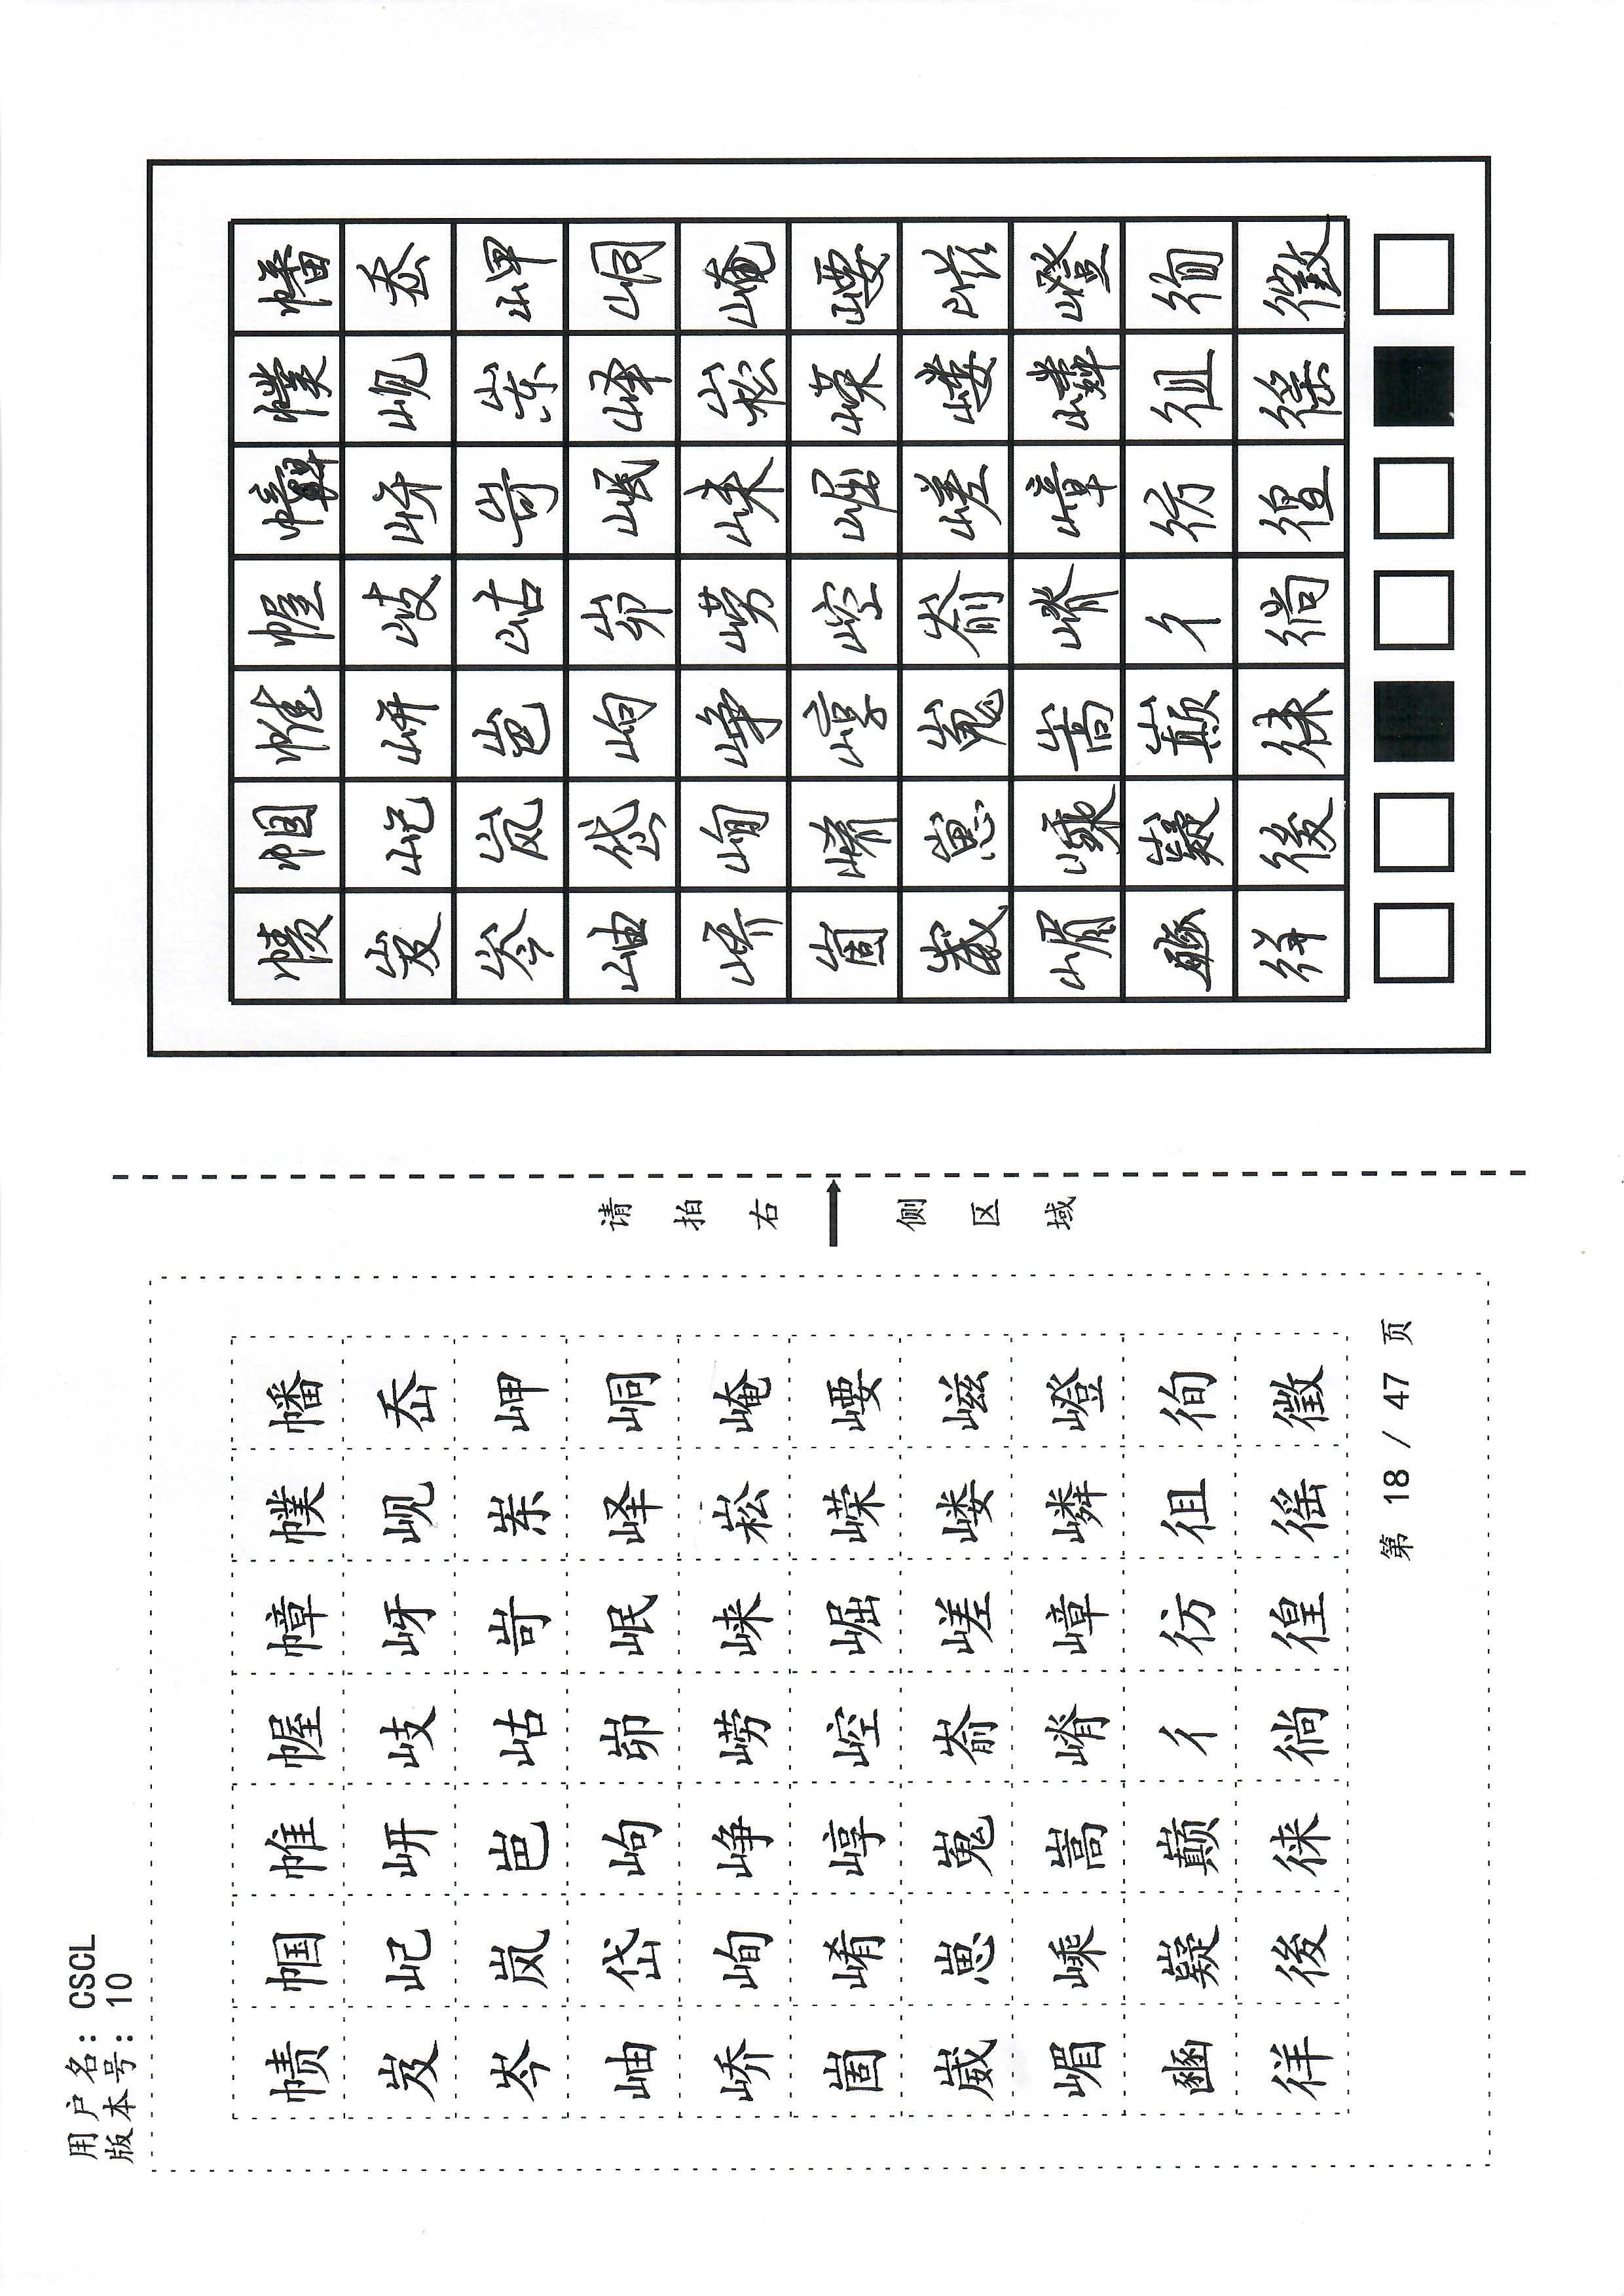 用户名：CSCL
版本号：10
帻帼帷幄幛幞幡
岌屺岍岐岈岘岙
岑岚岜岵岢岽岬
岫岱岣峁岷峄峒
峤峋峥崂崃崧崦
崮崤崞崆崛嵘崾
崴崽嵬嵛嵯嵝嵫
嵋嵊嵩嵴嶂嶙嶝
豳嶷巅彳彷徂徇
徉後徕徜徨徭徵
第 18 / 47 页
请拍右侧区域
帻帼帷幄幛幞幡
岌屺岍岐岈岘岙
岑岚岜岵岢岽岬
岫岱岣峁岷峄峒
峤峋峥崂崃崧崦
崮崤崞崆崛嵘崾
崴崽嵬嵛嵯嵝嵫
嵋嵊嵩嵴嶂嶙嶝
豳嶷巅彳彷徂徇
徉後徕徜徨徭徵